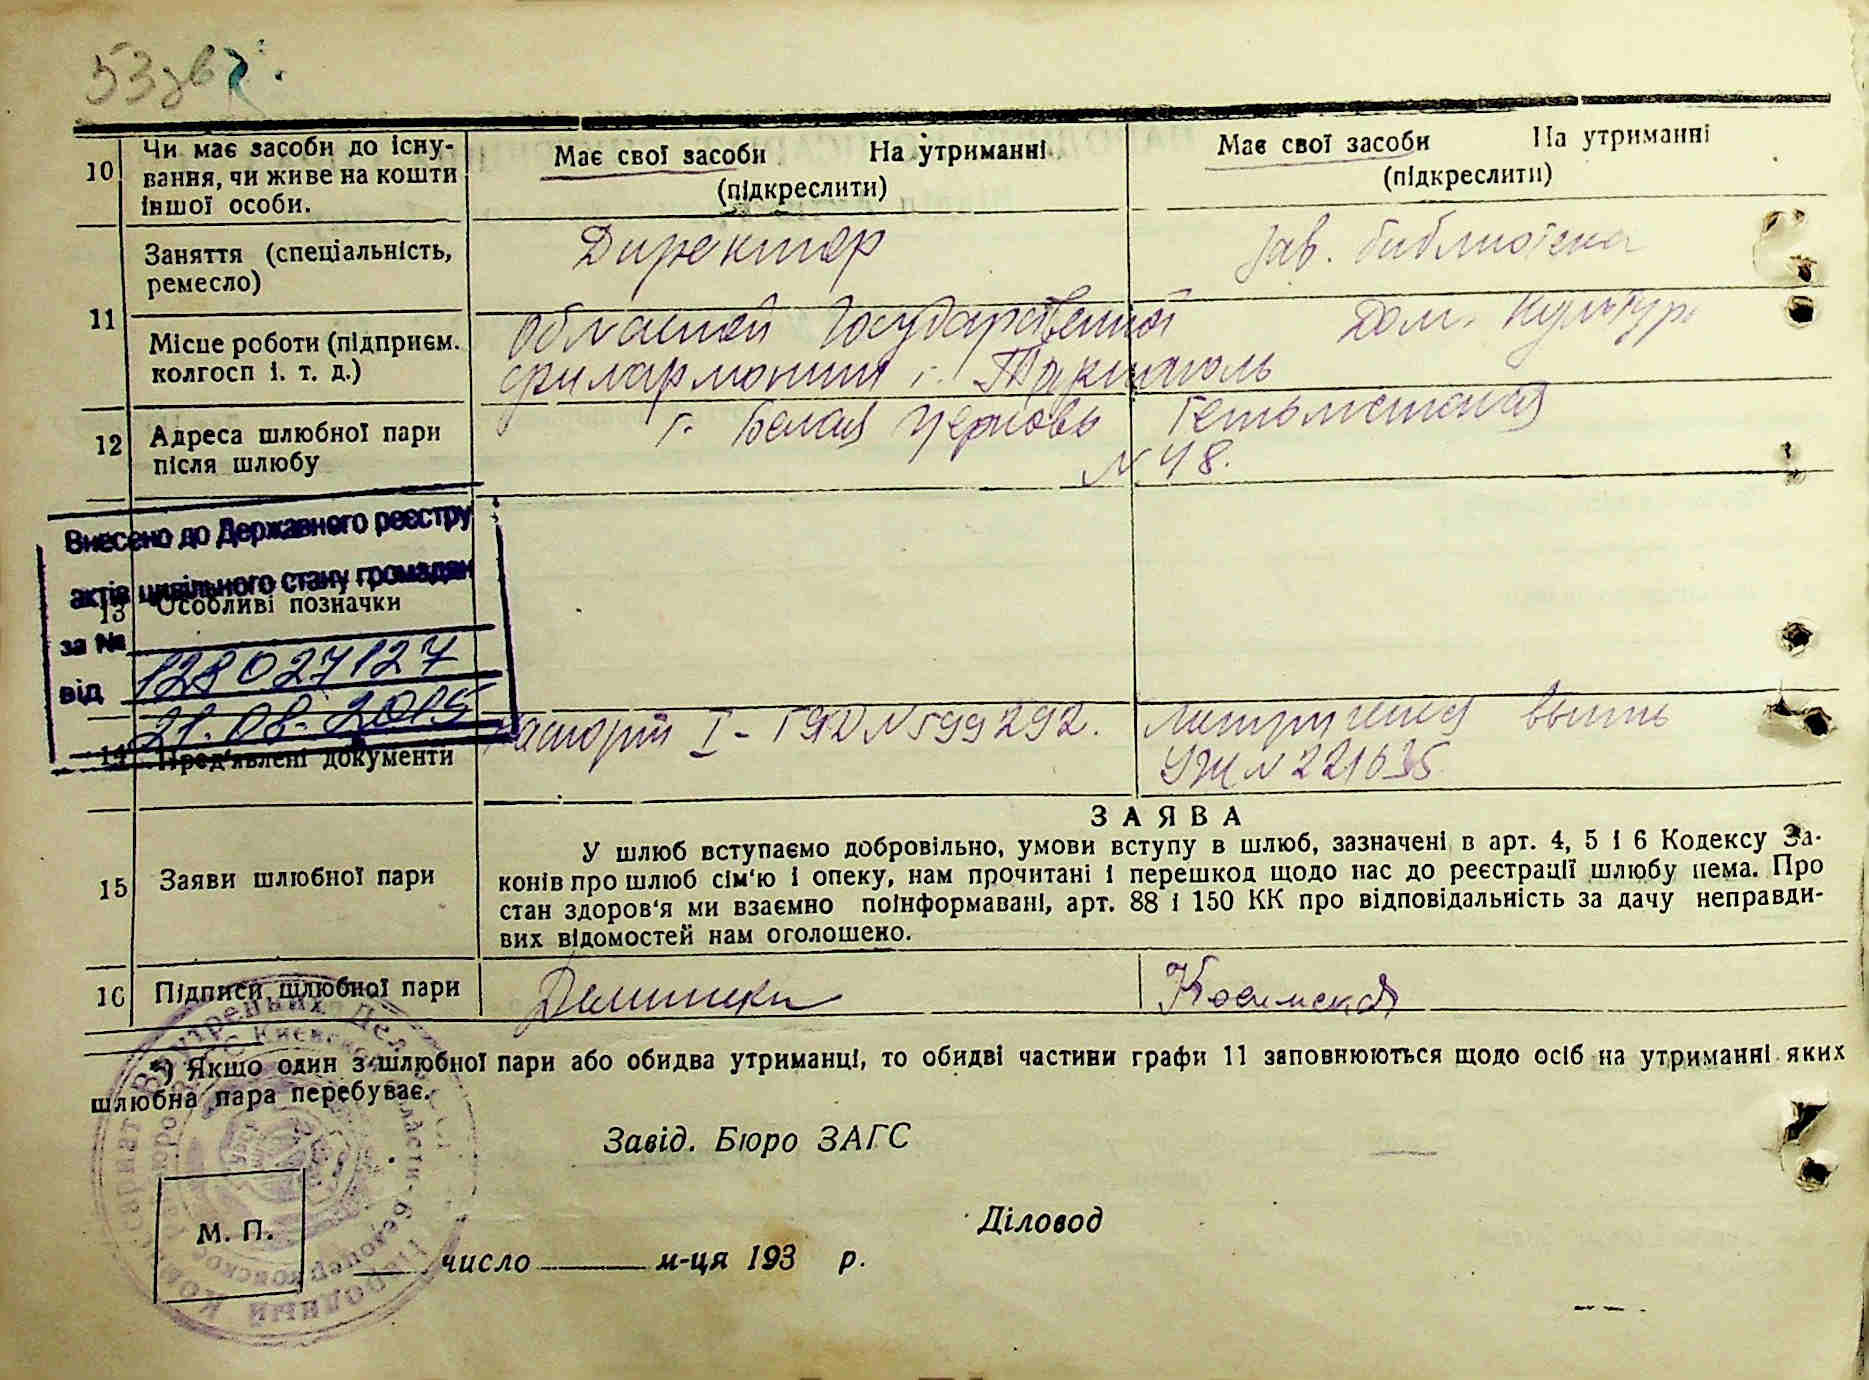 10 Чи має засоби до існу-
вання, чи живе на кошти
іншої особи.
Має свої засоби На утриманні
(підкреслити)
Має свої засоби На утриманні
(підкреслити)
11 Заняття (спеціальність,
ремесло)
Директор
Зав. библиотека
Місце роботи (підприєм.
колгосп і. т. д.)
Областной Государственной
филармонии г.
Дом. Культур
12 Адреса шлюбної пари
після шлюбу
г. Белая Церковь
№ 48.
Внесено до Державного реєстру
актів цивільного стану громадян
за №
128027127
від
21.08.2015
13 Особливі позначки
14 Пред'явлені документи
Паспорт I - № 599292.
УЖ № 221635
15 Заяви шлюбної пари
ЗАЯВА
У шлюб вступаємо добровільно, умови вступу в шлюб, зазначені в арт. 4, 5 і 6 Кодексу За-
конів про шлюб сім'ю і опеку, нам прочитані і перешкод щодо нас до реєстрації шлюбу нема. Про
стан здоров'я ми взаємно поінформавані, арт. 88 і 150 КК про відповідальність за дачу неправди-
вих відомостей нам оголошено.
16 Підписи шлюбної пари
*) Якщо один з шлюбної пари або обидва утриманці, то обидві частини графи 11 заповнюються щодо осіб на утриманні яких
шлюбна пара перебуває.
Завід. Бюро ЗАГС
М. П.
Діловод
число м-ця 193 р.